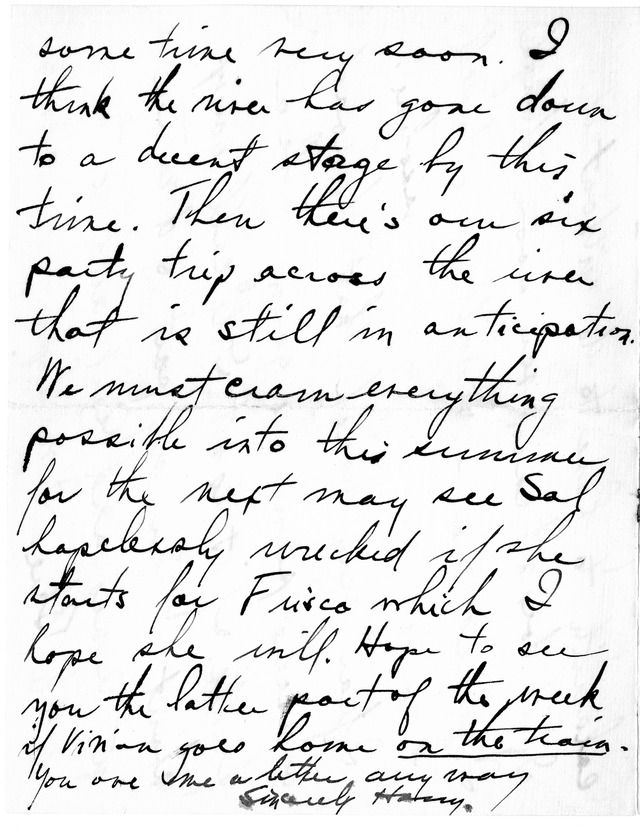 some time very soon. I
think the river has gone down
to a decent stage by this
time. Then there's our six
party trip across the river
that is still in anticipation.
We must cram everything
possible into this summer
for the next may see Sal
hopelessly wrecked if she
starts for Frisco which I
hope she will. Hope to see
you the latter part of the week
if Vivian goes home on the train.
You owe me a letter any way
Sincerely Harry.